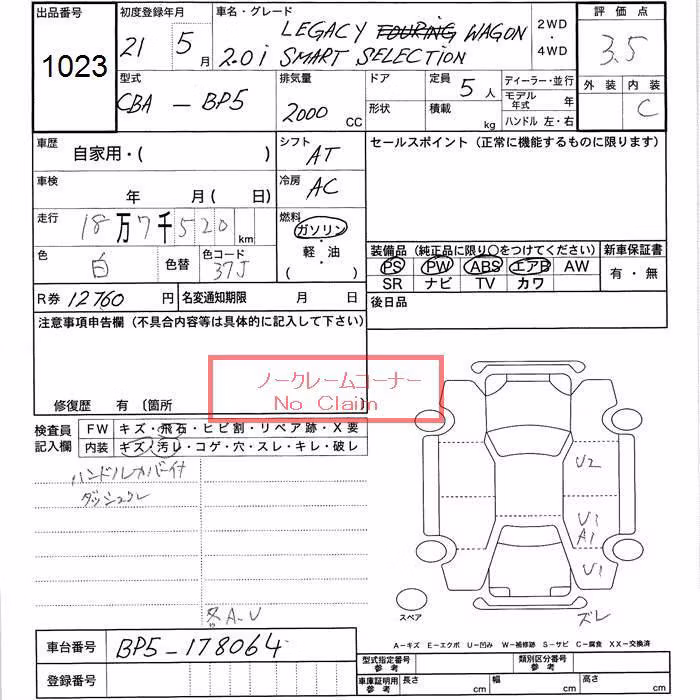 出品番号 初度登録年月 車名・グレード 2WD ・ 4WD 評価点
1023 21 5月 LEGACY TOURING WAGON 3.5
2.0i SMART SELECTION
外装 内装
C
型式 排気量 ドア 定員 5人 ディーラー・並行
CBA - BP5 2000 CC 形状 積載 kg モデル年式 年
ハンドル 左・右
車歴 自家用・( ) シフト AT セールスポイント(正常に機能するものに限ります)
車検 年 月( 日) 冷房 AC
走行 18万7千520km 燃料 ガソリン・軽・油 ( )
色 白 色替 色コード 37J
装備品(純正品に限り○をつけてください) 新車保証書
PS PW ABS エアB AW 有・無
SR ナビ TV カワ
R券 12760円 名変通知期限 月 日 後日品
注意事項申告欄(不具合内容等は具体的に記入して下さい)
ノークレームコーナー
No Claim
修復歴 有 〔箇所
検査員記入欄 FW キズ・飛石・ヒビ割・リペア跡・X要
内装 キズ・汚レ・コゲ・穴・スレ・キレ・破レ
ハンドルカバー付
U2
U1
A1
U1
ズレ
スペア
各A.U
A-キズ E-エクボ U-凹み W-補修跡 S-サビ C-腐食 XX-交換済
車台番号 BP5-178064
登録番号
型式指定番号 参考 類別区分番号 参考
車庫証明用 参考 長さ cm 幅 cm 高さ cm